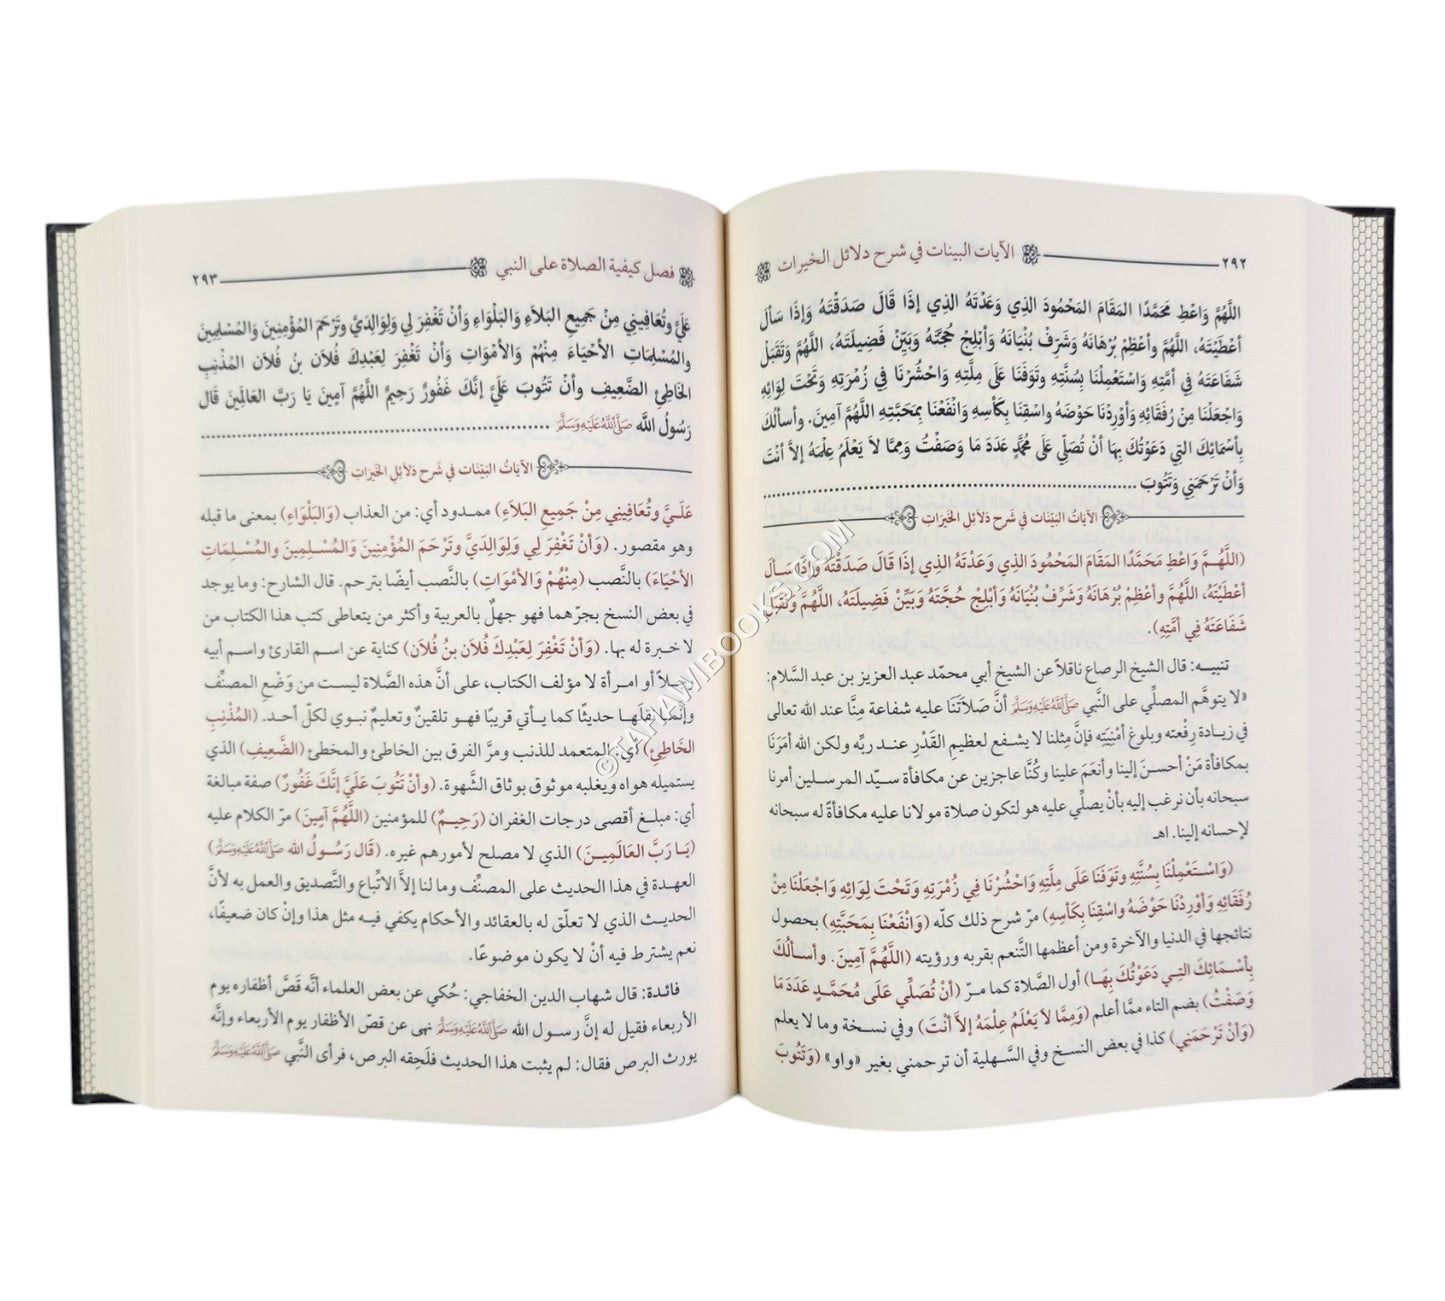 ٢٩٢ الآيات البينات في شرح دلائل الخيرات
اللَّهُمَّ وَاعْطِ مُحَمَّدًا المَقَامَ المَحْمُودَ الذِي وَعَدْتَهُ الذِي إذَا قَالَ صَدَقْتَهُ وَإذَا سَأَلَ
أعْطَيْتَهُ، اللَّهُمَّ وأعْظِمْ بُرْهَانَهُ وَشَرِّفْ بُنْيَانَهُ وَأبْلِجْ حُجَّتَهُ وَبَيِّنْ فَضِيلَتَهُ، اللَّهُمَّ وَتَقَبَّلْ
شَفَاعَتَهُ فِي أمَّتِهِ وَاسْتَعْمِلْنَا بِسُنَّتِهِ وتَوَفَّنَا عَلَى مِلَّتِهِ وَاحْشُرْنَا فِي زُمْرَتِهِ وَتَحْتَ لِوَائِهِ
وَاجْعَلْنَا مِنْ رُفَقَائِهِ وَأوْرِدْنَا حَوْضَهُ واسْقِنَا بِكَأْسِهِ وَانْفَعْنَا بِمَحَبَّتِهِ اللَّهُمَّ آمِينَ. وأسألُكَ
بِأسْمَائِكَ التِي دَعَوْتُكَ بِهَا أنْ تُصَلِّيَ عَلَى مُحَمَّدٍ عَدَدَ مَا وَصَفْتُ وَمِمَّا لاَ يَعْلَمُ عِلْمَهُ إلاَّ أنْتَ
وَأنْ تَرْحَمَنِي وَتَتُوبَ
الآيَاتُ البَيِّنَات فِي شَرح دَلَائِلِ الخَيرَاتِ
(اللَّهُمَّ وَاعْطِ مُحَمَّدًا المَقَامَ المَحْمُودَ الذِي وَعَدْتَهُ الذِي إذَا قَالَ صَدَقْتَهُ وَإذَا سَألَ
أعْطَيْتَهُ، اللَّهُمَّ وأعْظِمْ بُرْهَانَهُ وَشَرِّفْ بُنْيَانَهُ وَأبْلِجْ حُجَّتَهُ وَبَيِّنْ فَضِيلَتَهُ، اللَّهُمَّ وَتَقَبَّلْ
شَفَاعَتَهُ فِي أمَّتِهِ).
تنبيه: قال الشيخ الرصاع ناقلاً عن الشيخ أبي محمّد عبد العزيز بن عبد السَّلام:
«لا يتوهَّم المصلِّي على النَّبي ﷺ أنَّ صَلاَتَنَا عليه شفاعة مِنَّا عند الله تعالى
في زيادة رِفْعته وبلوغ أمْنِيَته فإنَّ مِثلنا لا يشفع لعظيمِ القَدْرِ عند ربِّه ولكن الله أمَرَنَا
بمكافأة مَنْ أحسنَ إلينا وأنعَمَ علينا وكُنَّا عاجزين عن مكافأة سيّد المرسلين أمرنا
سبحانه بأن نرغب إليه بأنْ يصلِّي عليه هو لتكون صلاة مولانا عليه مكافأةً له سبحانه
لإحسانه إلينا. اهـ
(وَاسْتَعْمِلْنَا بِسُنَّتِهِ وتَوَفَّنَا عَلَى مِلَّتِهِ وَاحْشُرْنَا فِي زُمْرَتِهِ وَتَحْتَ لِوَائِهِ وَاجْعَلْنَا مِنْ
رُفَقَائِهِ وَأوْرِدْنَا حَوْضَهُ واسْقِنَا بِكَأسِهِ) مرّ شرح ذلك كلّه (وَانْفَعْنَا بِمَحَبَّتِهِ) بحصول
نتائجها في الدنيا والآخرة ومن أعظمها التَّنعم بقربه ورؤيته (اللَّهُمَّ آمِينَ. وأسألُكَ
بِأسْمَائِكَ التِي دَعَوْتُكَ بِهَا) أول الصَّلاة كما مرّ (أنْ تُصَلِّي عَلَى مُحَمَّدٍ عَدَدَ مَا
وَصَفْتُ) بضم التاء ممَّا أعلم (وَمِمَّا لاَ يَعْلَمُ عِلْمَهُ إلاَّ أنْتَ) وفي نسخة وما لا يعلم
(وَأنْ تَرْحَمَنِي) كذا في بعض النسخ وفي السَّهلية أن ترحمني بغير «واو» (وَتَتُوبَ
فصل كيفية الصلاة على النبي ٢٩٣
عَلَيَّ وتُعَافِينِي مِنْ جَمِيعِ البَلاَءِ وَالبَلْوَاءِ وَأنْ تَغْفِرَ لِي وَلِوَالِدَيَّ وتَرْحَمَ المُؤْمِنِينَ وَالمُسْلِمِينَ
والمُسْلِمَاتِ الأحْيَاءَ مِنْهُمْ وَالأمْوَاتِ وَأنْ تَغْفِرَ لِعَبْدِكَ فُلاَنِ بْنُ فُلاَنِ المُذْنِبِ
الخَاطِئِ الضَّعِيفِ وأنْ تَتُوبَ عَلَيَّ إنَّكَ غَفُورٌ رَحِيمٌ اللَّهُمَّ آمِينَ يَا رَبَّ العَالَمِينَ قَالَ
رَسُولُ اللَّه ﷺ
الآيَاتُ البَيِّنَات فِي شَرح دَلَائِلِ الخَيرَاتِ
عَلَيَّ وتُعَافِينِي مِنْ جَمِيعِ البَلاَءِ) ممدود أي: من العذاب (وَالبَلْوَاءِ) بمعنى ما قبله
وهو مقصور. (وَأنْ تَغْفِرَ لِي وَلِوَالِدَيَّ وتَرْحَمَ المُؤْمِنِينَ وَالمُسْلِمِينَ والمُسْلِمَاتِ
الأحْيَاءَ) بالنَّصب (مِنْهُمْ وَالأمْوَاتِ) بالنَّصب أيضًا بترحم. قال الشارح: وما يوجد
في بعض النسخ بجرّهما فهو جهلٌ بالعربية وأكثر من يتعاطى كتب هذا الكتاب من
لا خبرة له بها. (وَأنْ تَغْفِرَ لِعَبْدِكَ فُلاَنِ بنُ فُلاَن) كناية عن اسم القارئ واسم أبيه
رجلاً أو امرأة لا مؤلف الكتاب، على أنَّ هذه الصَّلاة ليست من وَضْعِ المصنِّف
وإنَّما نقلَها حديثًا كما يأتي قريبًا فهو تلقينٌ وتعليمٌ نبوي لكلّ أحد. (المُذْنِبِ
الخَاطِئِ) أي: المتعمد للذنب ومرَّ الفرق بين الخاطئ والمخطئ (الضَّعِيفِ) الذي
يستميله هواه ويغلبه موثوق بوثاق الشَّهوة. (وأنْ تَتُوبَ عَلَيَّ إنَّكَ غَفُورٌ) صفة مبالغة
أي: مبلغ أقصى درجات الغفران (رَحِيمٌ) للمؤمنين (اللَّهُمَّ آمِينَ) مرّ الكلام عليه
(يَا رَبَّ العَالَمِينَ) الذي لا مصلح لأمورهم غيره. (قَال رَسُولُ الله ﷺ)
العهدة في هذا الحديث على المصنِّف وما لنا إلاَّ الاتّباع والتَّصديق والعمل به لأنَّ
الحديث الذي لا تعلّق له بالعقائد والأحكام يكفي فيه مثل هذا وإنْ كان ضعيفًا،
نعم يشترط فيه أنْ لا يكون موضوعًا.
فائدة: قال شهاب الدين الخفاجي: حُكي عن بعض العلماء أنَّه قَصَّ أظفاره يوم
الأربعاء فقيل له إنَّ رسول الله ﷺ نهى عن قصّ الأظفار يوم الأربعاء وإنَّه
يورث البرص فقال: لم يثبت هذا الحديث فلَحِقه البرص، فرأى النَّبي ﷺ
©TARIMIBOOKS.COM